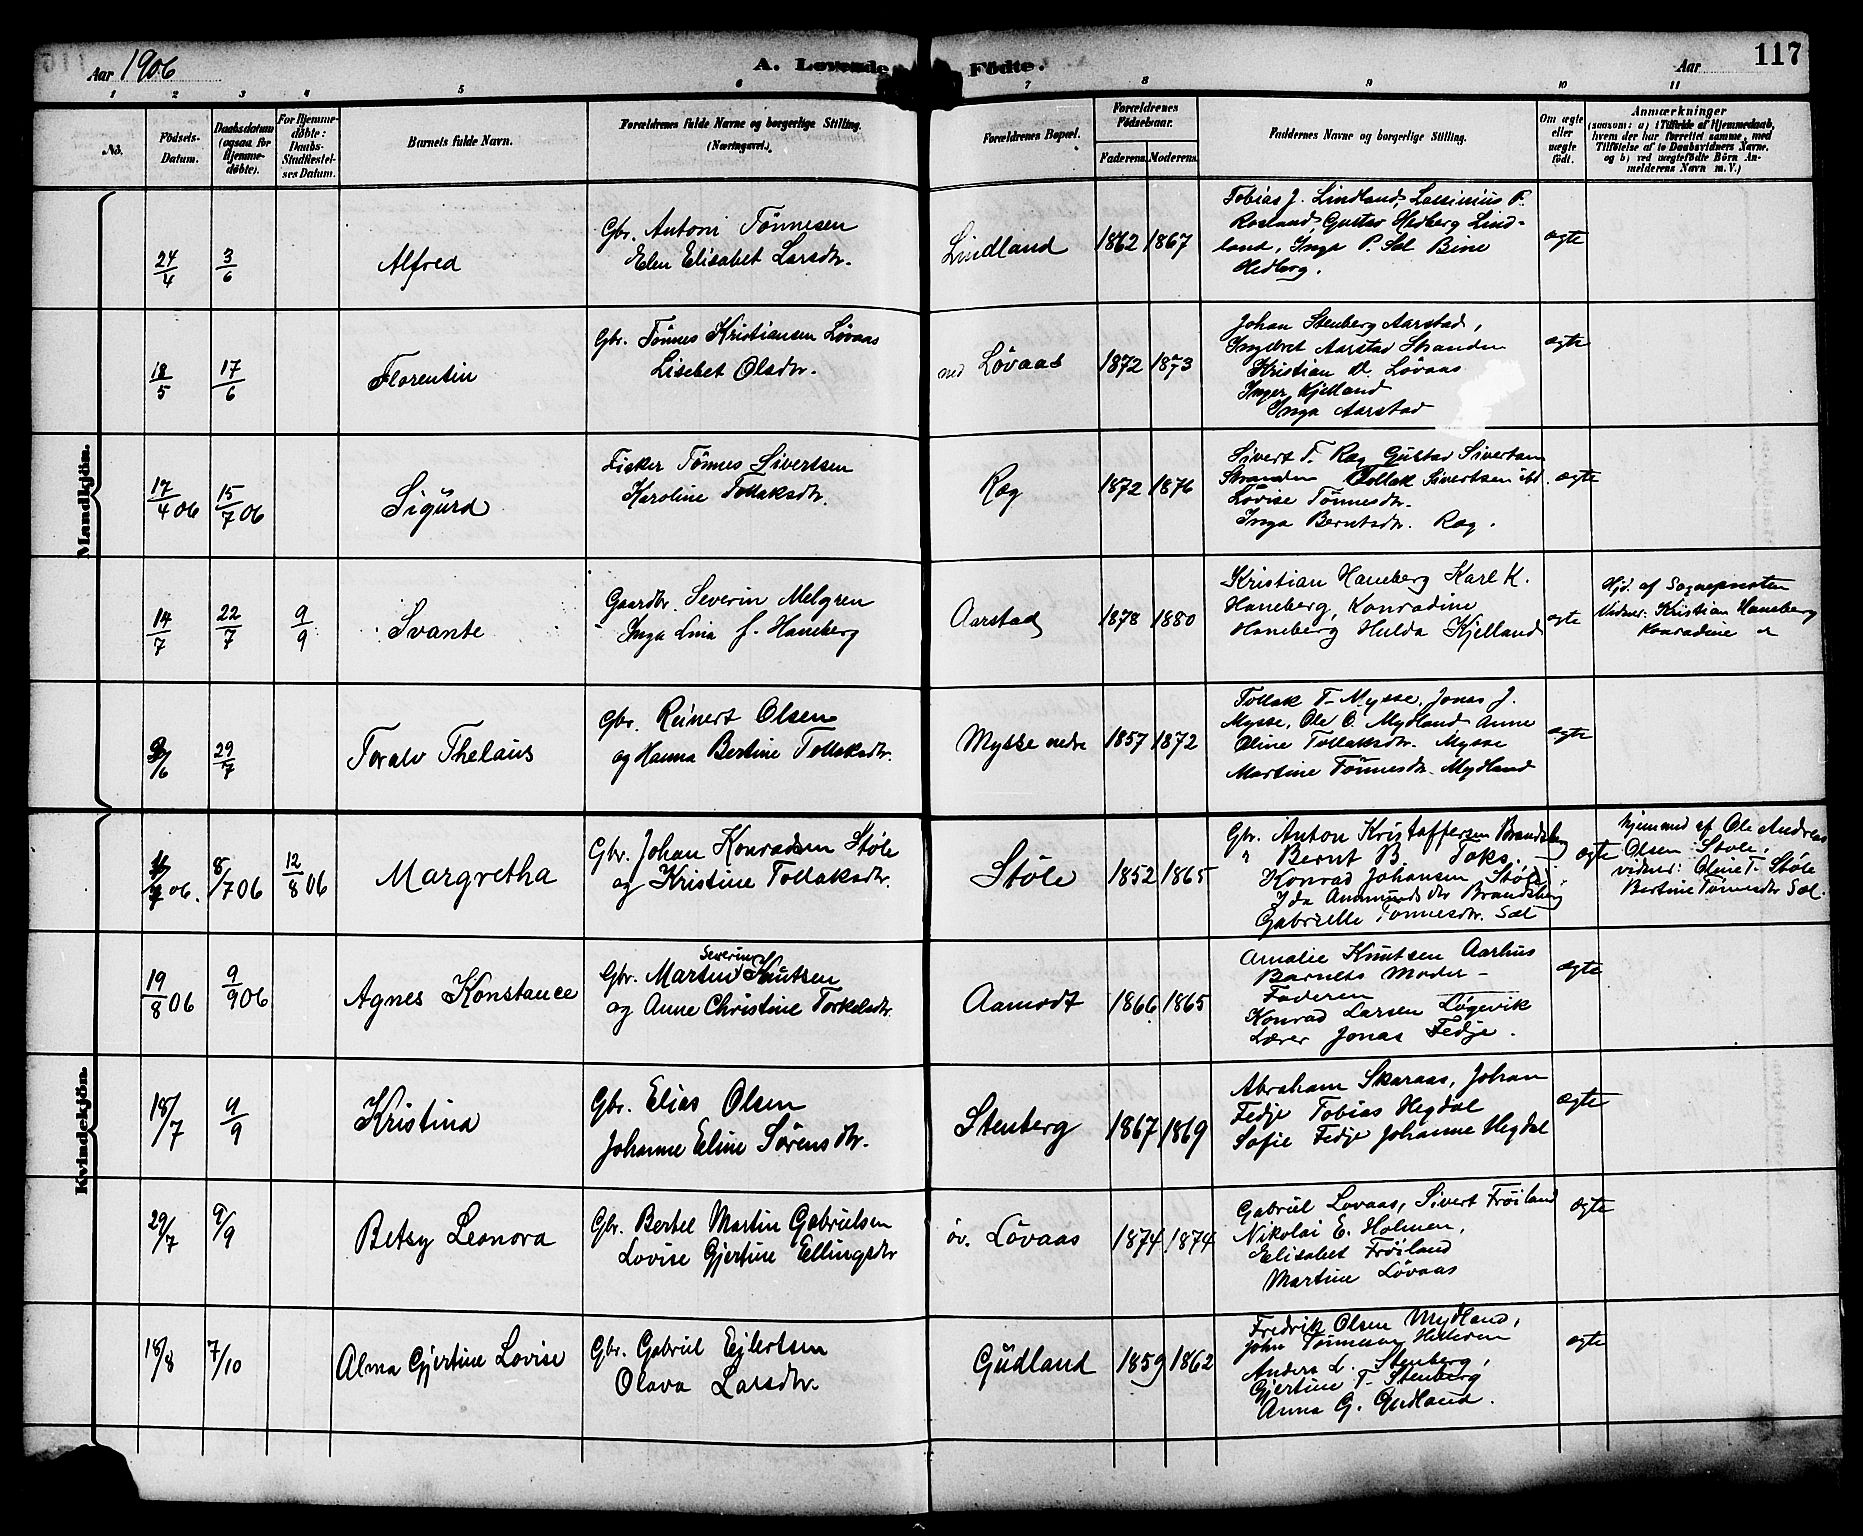 Aar 1906
A. Levende Födte.
Aar
117
1 2 3 4 5 6 7 8 9 10 11
No.
Födsels-
Datum.
Daabsdatum
(ogsaa for
Hjemme-
døbte).
For Hjemme-
døbte:
Daabs-
Stadfæstel-
ses Datum.
Barnets fulde Navn.
Forældrenes fulde Navne og borgerlige Stilling.
(Næringsvei.)
Forældrenes Bopæl.
Forældrenes
Födselsaar.
Faderens. Moderens.
Faddernes Navne og borgerlige Stilling.
Om ægte
eller
uægte
født.
Anmærkninger
(saasom: a) i Tilfælde af Hjemmedaab,
hvem der har forrettet samme, med
Tilföielse af to Daabsvidners Navne,
og b) ved uægtefödte Börn An-
melderens Navn m. V.)
Mandkjön.
24/4 3/6 Alfred
Gbr. Antoni Tönnesen
Elen Elisabet Larsdtr.
Lindland 1862 1867
Tobias J. Lindland,
Rosland, Gustav Hedberg Lind-
land, Inga P. Sel Bine
Hedberg.
ægte
18/5 17/6 Florentin
Gbr. Tönnes Kristiansen Lövaas
Lisebet Olsdtr.
ned Lövaas 1872 1873
Johan Stenberg Aarstad,
Ingebret Aarstad Stranden
Kristian O. Lövaas
Inger Kjelland
Inga Aarstad
ægte
17/4 06 15/7 06 Sigurd
Fisker Tönnes Sivertsen
Karoline Tollaksdtr.
Ræg 1872 1876
Sivert T. Ræg Gustav Sivertsen
Stranden Tollak Sivertsen ibd.
Lovise Tönnesdtr.
Inga Berntsdtr. Ræg.
ægte
14/7 22/7 9/9 Svante
Gaardbr. Severin Melgren
Inga Lina f. Haneberg
Aarstad 1878 1880
Kristian Haneberg Karl K.
Haneberg, Konradine
Haneberg Hulda Kjelland
ægte
Hjd. af Sognepresten
Vidner: Kristian Haneberg
Konradine
/6 29/7 Toralv Thelaus
Gbr. Reinert Olsen
og Hanna Bertine Tollaksdtr.
Mysse nedre 1857 1872
Tollak T. Mysse, Jonas J.
Mysse, Ole O. Mydland Anne
Oline Tollaksdtr. Mysse
Martine Tönnesdtr. Mydland
ægte
Kvindekjön.
06. 8/7 06 12/8 06 Margretha
Gbr. Johan Konradsen Støle
og Kristine Tollaksdtr.
Støle 1852 1865
Gbr. Anton Kristoffersen Brandsberg
" Bernt B. Toks. —
Konrad Johansen Støle
Ida Ammundsdtr Brandsberg
Gabrielle Tönnesdtr. Sæl
ægte
hjemmed af Ole Andreas
Olsen Støle,
vidner: Oline T. Støle
Bertine Tönnesdtr Sæl.
19/8 06 9/9 06 Agnes Konstance
Severin
Gbr. Martin Knutsen
og Anne Christine Torkelsdtr.
Aamodt 1866 1865
Amalie Knutsen Aarhus
Barnets Moder —
Faderen
Konrad Larsen Løgevik
Lærer Jonas Fedje.
ægte
18/7 9/9 Kristina
Gbr. Elias Olsen
Johanne Eline Sörensdtr.
Stenberg 1867 1869
Abraham Skaraas, Johan
Fedje Tobias Hegdal
Sofie Fedje Johanne Hegdal
ægte
29/7 9/9 Betsy Leonora
Gbr. Bertel Martin Gabrielsen
Lovise Gjertine Ellingsdtr
öv. Lövaas 1874 1874
Gabriel Lovaas, Sivert Fröiland
Nikolai E. Holmen,
Elisabet Fröiland
Martine Lövaas
ægte
18/8 7/10 Alma Gjertine Lovise
Gbr. Gabriel Ejlertsen
Olava Larsdtr.
Gudland 1859 1862
Fredrik Olsen Mydland,
John Tönnesen Helleren
Anders L. Stenberg,
Gjertine T. Stenberg
Anna G. Gudland.
ægte